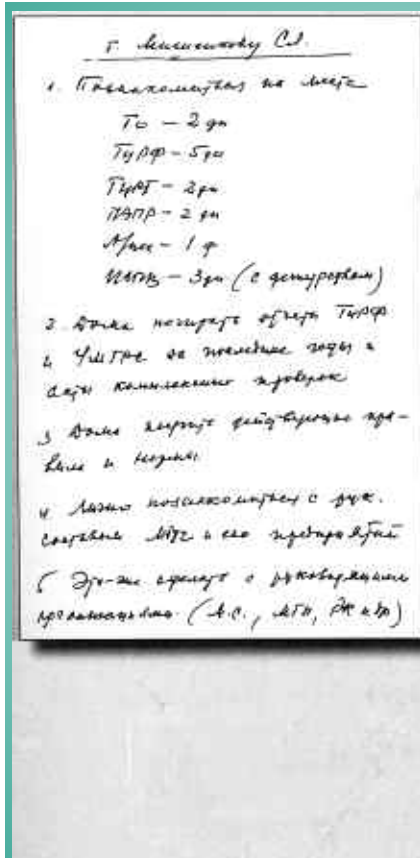 т. Мисюликову С.А.
1. Познакомиться на месте
То — 2 дн
ТуРФ — 5 дн
2 дн
ПАПР — 2 дн
— 1 д
— 3 дн (с дежурством)
2. Дома почитать отчеты ТуРФ
и за последние годы и
акты комплексных проверок
3 Дома изучить действующие пра-
вила и нормы
4 Лично познакомиться с рук.
составом и его предприятий
5 Это-же сделать с руководящими
организациями. (М.С., МГН, РК и др)